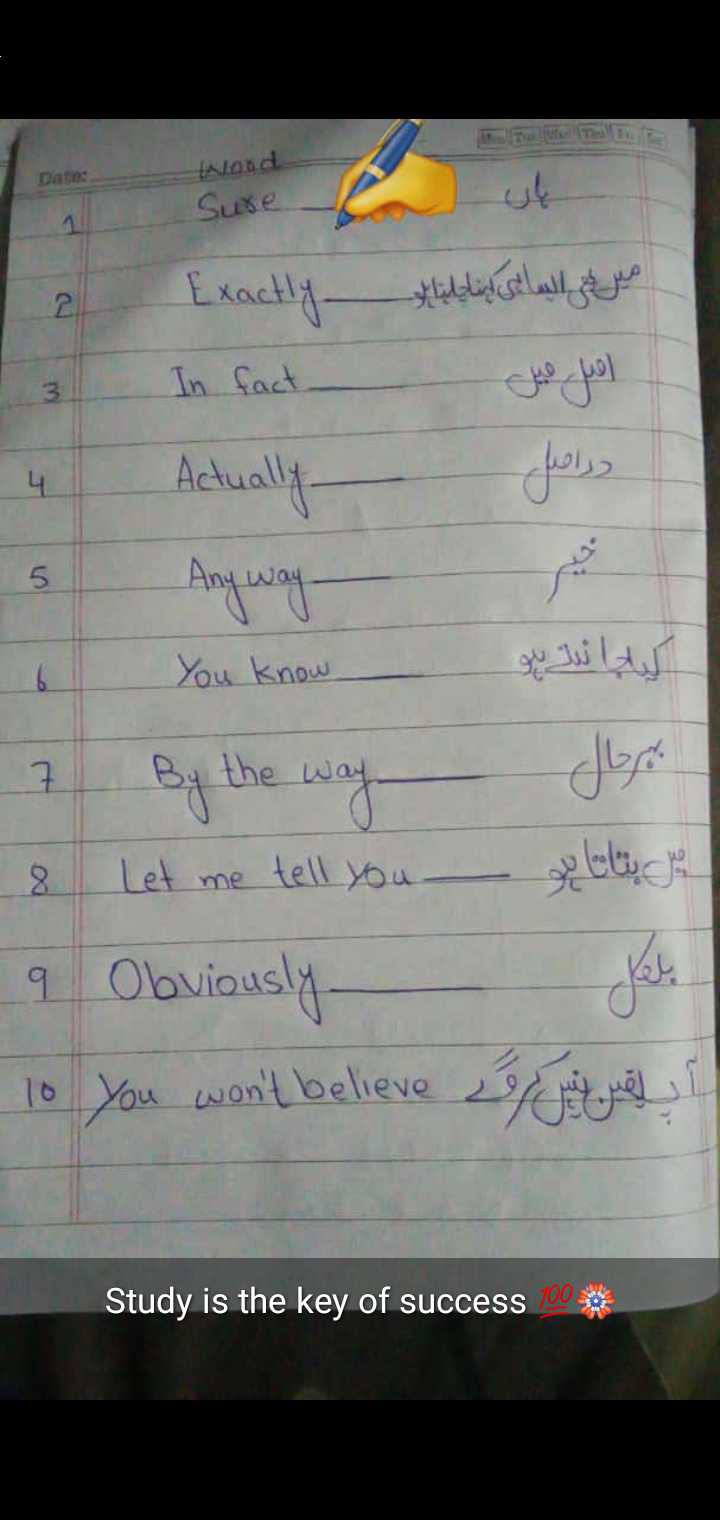 Mon Tue Wed Thu Fri Sat
Date:
Woad
1 Sure ہاں
2 Exactly میں بھی ایسا ہی کہنا چاہتا ہو
3 In fact اصل میں
4 Actually دراصل
5 Any way خیر
6 You know کیا جانتے ہو
7 By the way بہرحال
8 Let me tell you میں بتاتا ہو
9 Obviously
10 You won't believe آپ یقین نہیں کروگے
Study is the key of success 💯